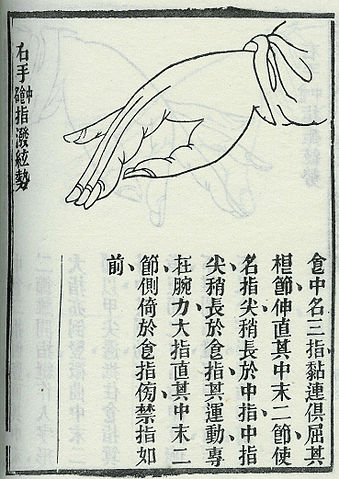 右手中指潑絃勢
食中名三指黏連俱屈其
根節伸直其中末二節使
名指尖稍長於中指中指
尖稍長於食指其運動專
在腕力大指直其中末二
節側倚於食指傍禁指如
前